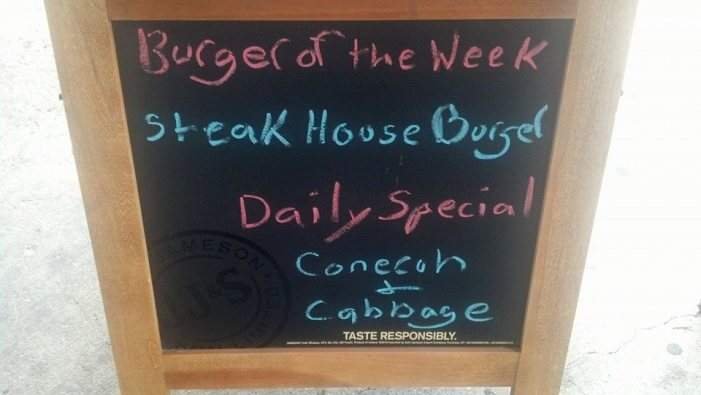 Burger of the Week
Steak House Burger
Daily Special
Conecuh
+
Cabbage
JAMESON
TASTE RESPONSIBLY.